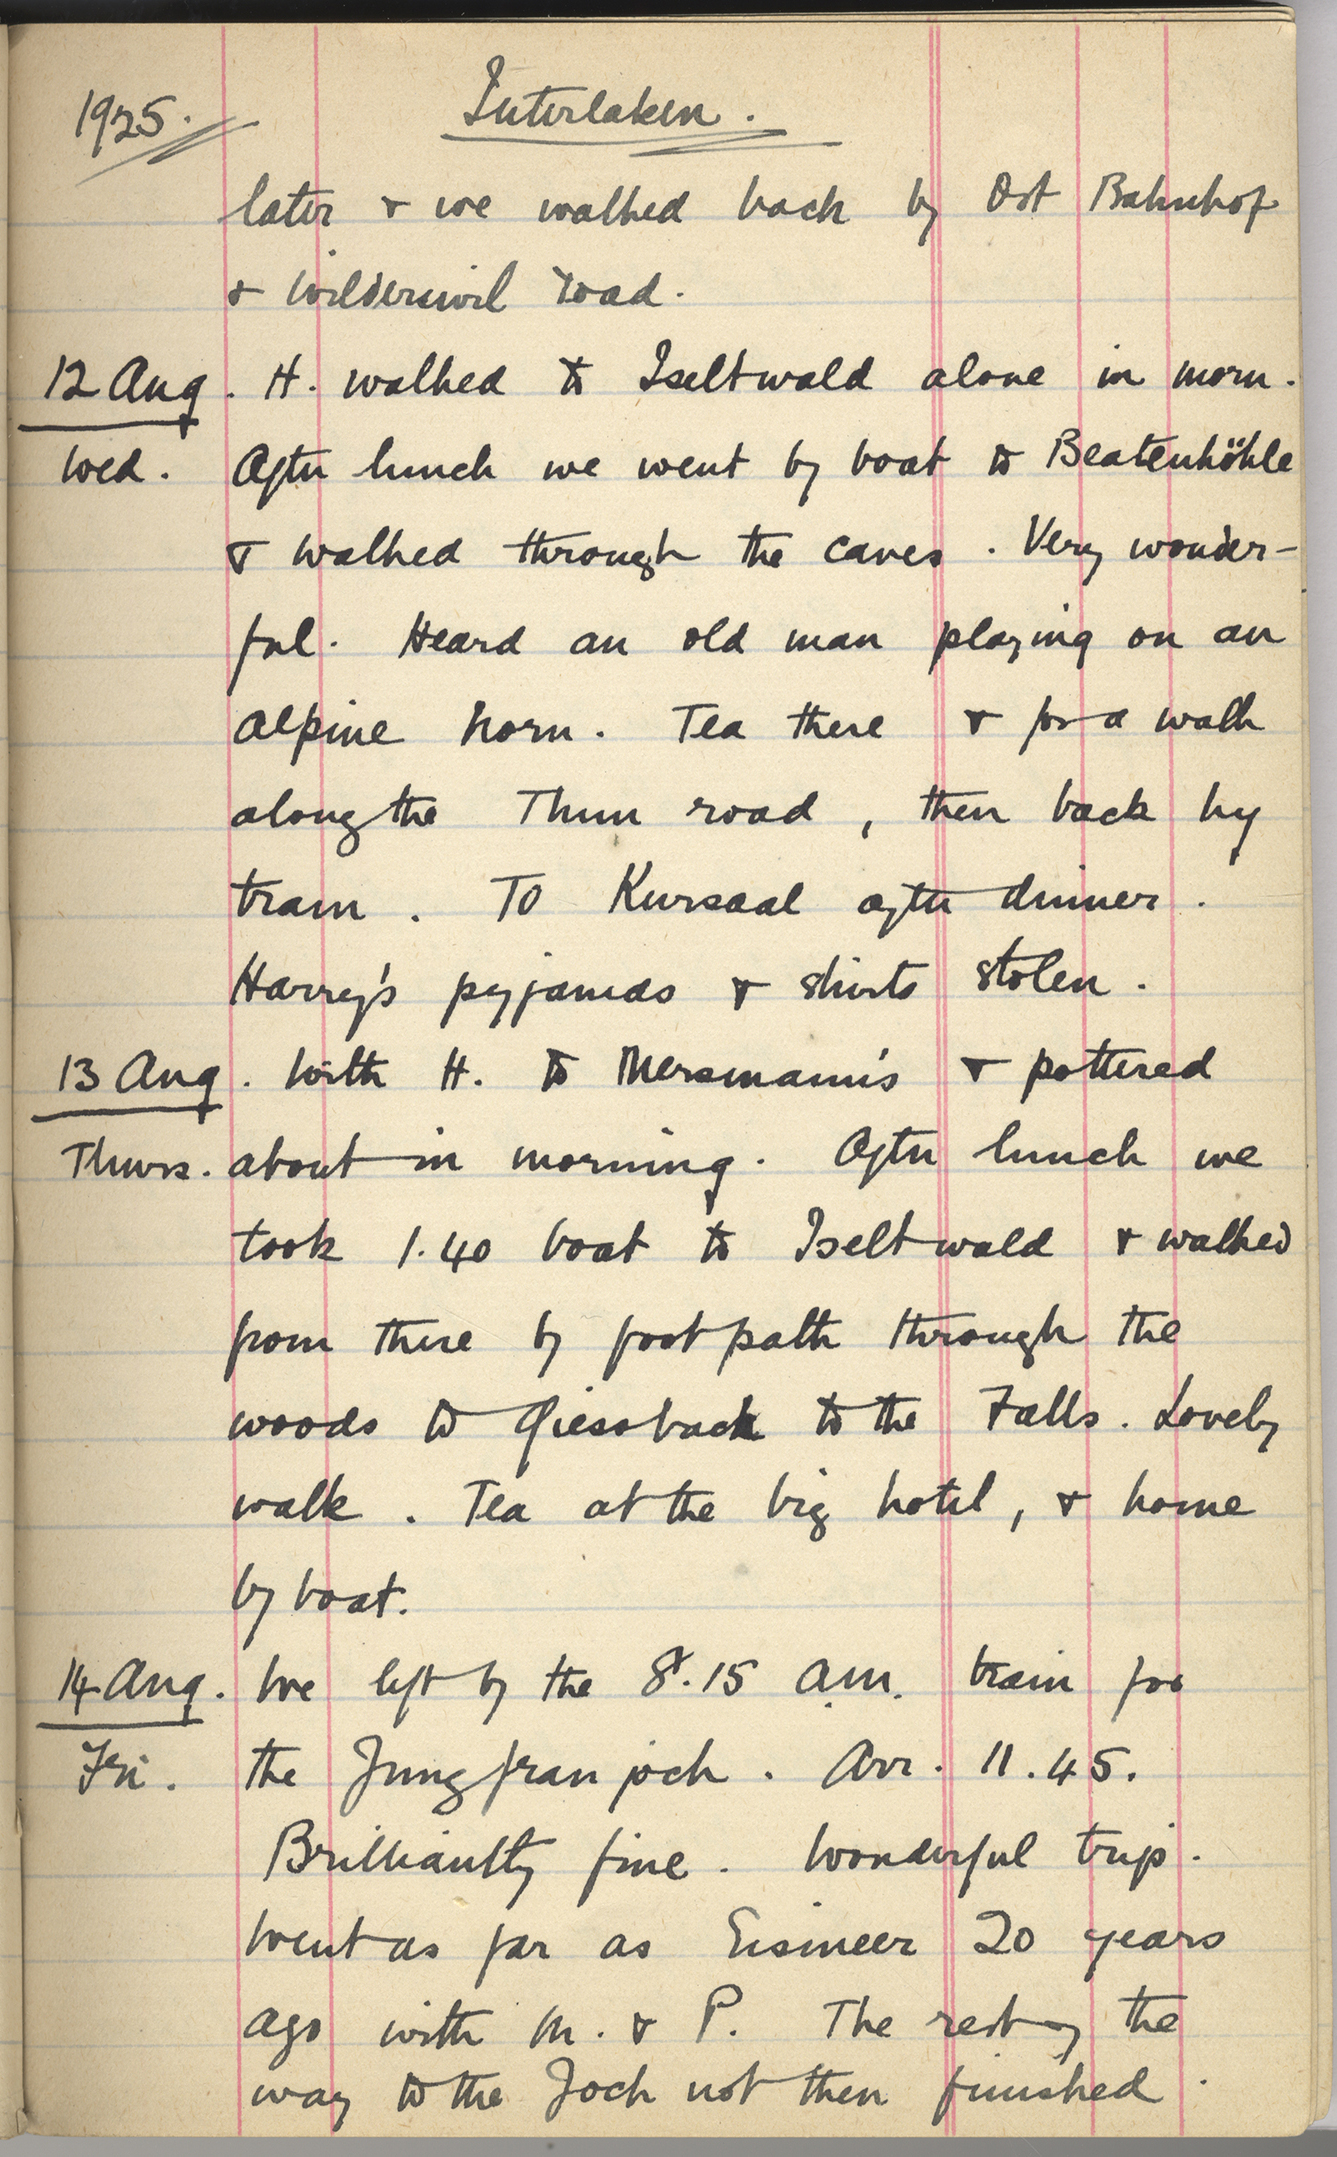 1925. Interlaken.
later & we walked back by Ost Bahnhof
& Wilderswil road.
12 Aug. H. walked to Iseltwald alone in morn.
Wed. After lunch we went by boat to Beatenhöhle
& walked through the caves. Very wonder-
ful. Heard an old man playing on an
alpine horn. Tea there & for a walk
along the Thun road, then back by
tram. To Kursaal after dinner.
Harry's pyjamas & shirts stolen.
13 Aug. With H. to Mersmann's & pottered
Thurs. about in morning. After lunch we
took 1.40 boat to Iseltwald & walked
from there by footpath through the
woods to Giessbach to the Falls. Lovely
walk. Tea at the big hotel, & home
by boat.
14 Aug. We left by the 8.15 a.m. train for
Fri. the Jungfraujoch. Arr. 11.45.
Brilliantly fine. Wonderful trip.
Went as far as Eismeer 20 years
ago with M. & P. The rest of the
way to the Joch not then finished.